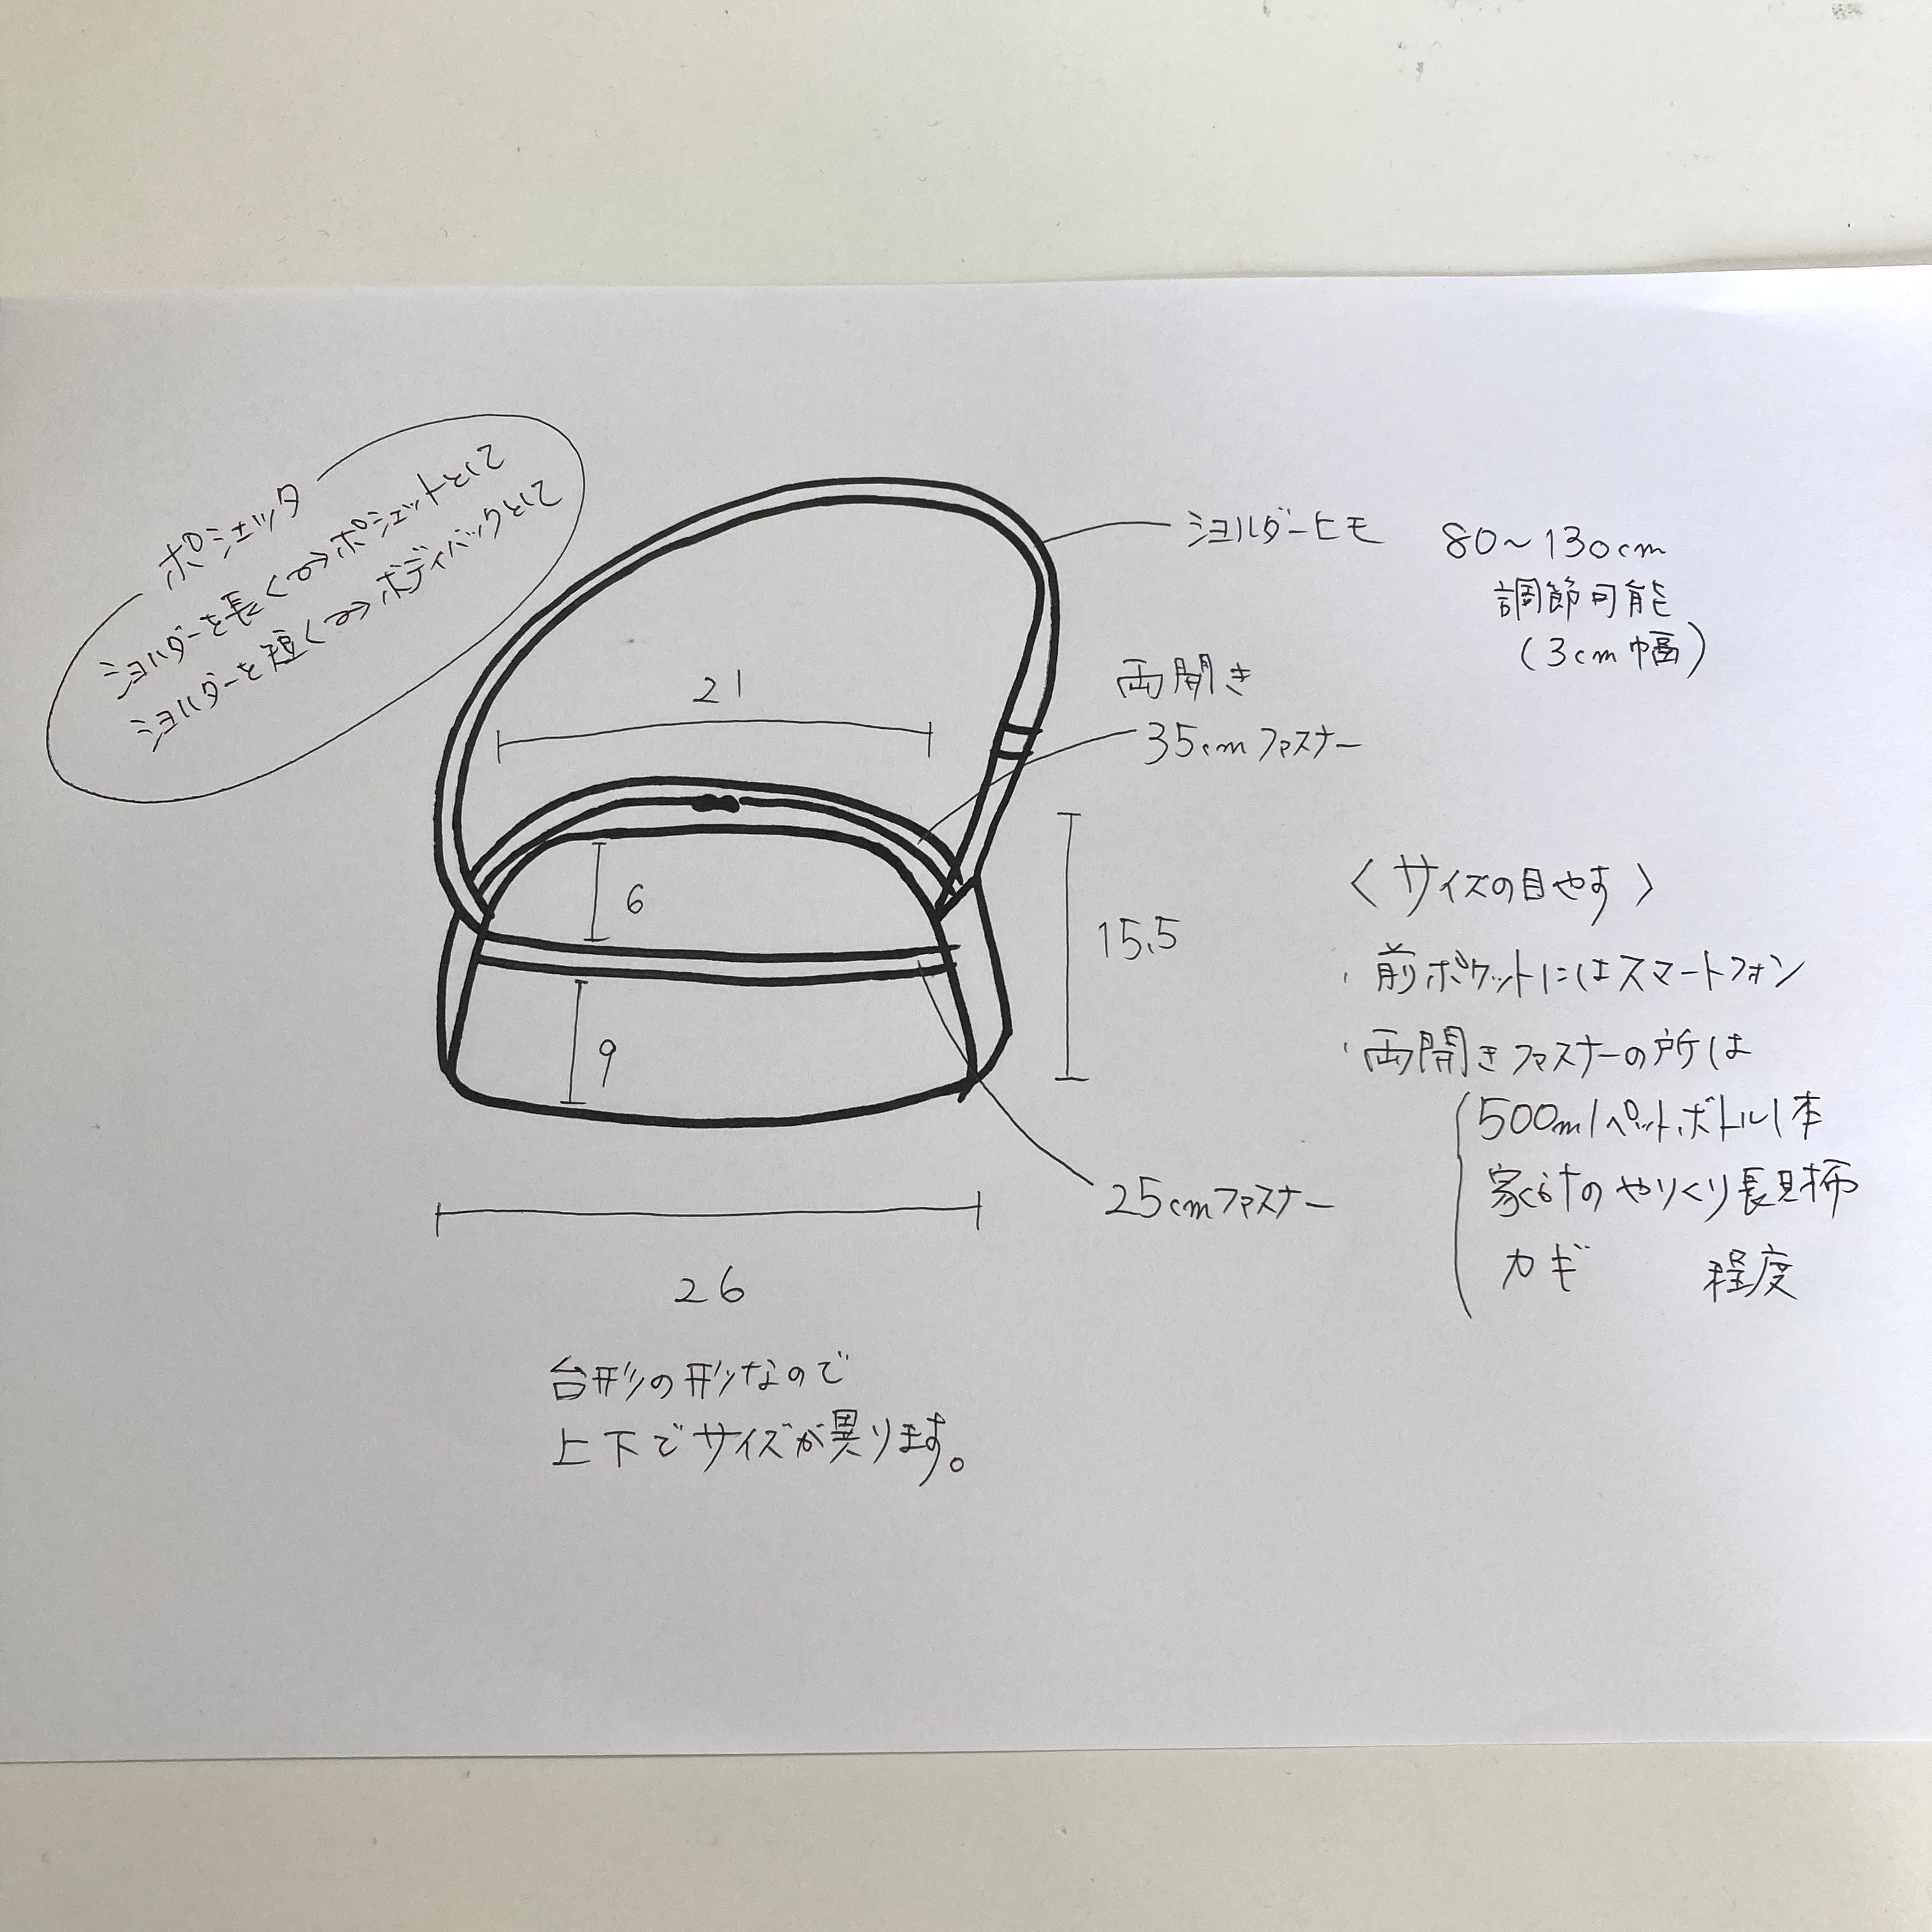 ポシェッタ
ショルダーを長く⇒ポシェットとして
ショルダーを短く⇒ボディバックとして
ショルダーヒモ 80~130cm
調節可能
(3cm幅)
両開き
35cmファスナー
21
6
15.5
9
25cmファスナー
26
台形の形なので
上下でサイズが異ります。
〈サイズの目やす〉
・前ポケットにはスマートフォン
・両開きファスナーの所は
500mlペットボトル1本
家計のやりくり長財布
カギ 程度